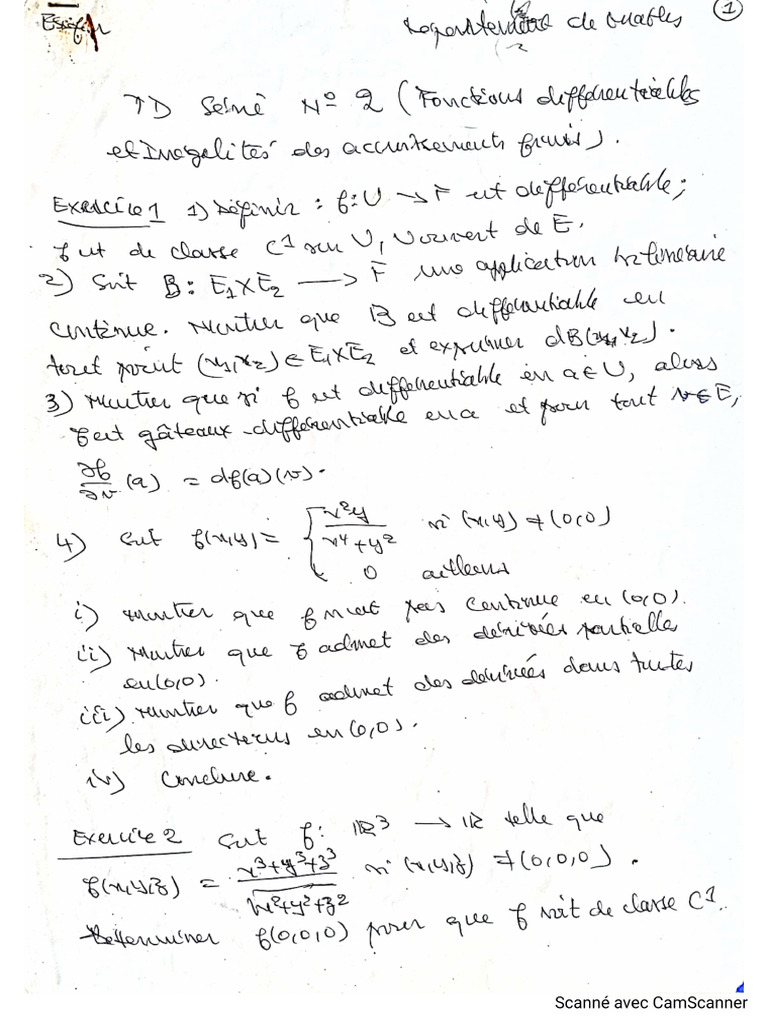 de
①
TD Série N° 2 (Fonctions différentiables
et Inégalités des accroissements finis).
Exercice 1 1) Définir : f: U → F est différentiable;
f est de classe C¹ sur U, U ouvert de E.
2) Soit B: E₁×E₂ → F une application bilinéaire
continue. Montrer que B est différentiable en
tout point (x₁,x₂) ∈ E₁×E₂ et exprimer dB(x₁,x₂).
3) Montrer que si f est différentiable en a ∈ U, alors
f est gâteaux-différentiable en a et pour tout v ∈ E,
∂f/∂v (a) = df(a)(v).
4) Soit f(x,y) = { x²y / (x⁴+y²) si (x,y) ≠ (0,0)
0 ailleurs
i) Montrer que f n'est pas continue en (0,0).
ii) Montrer que f admet des dérivées partielles
en (0,0).
iii) Montrer que f admet des dérivées dans toutes
les directions en (0,0).
iv) Conclure.
Exercice 2 Soit f: ℝ³ → ℝ telle que
f(x,y,z) = (x³+y³+z³) / √(x²+y²+z²) si (x,y,z) ≠ (0,0,0).
Determiner f(0,0,0) pour que f soit de classe C¹.
Scanné avec CamScanner